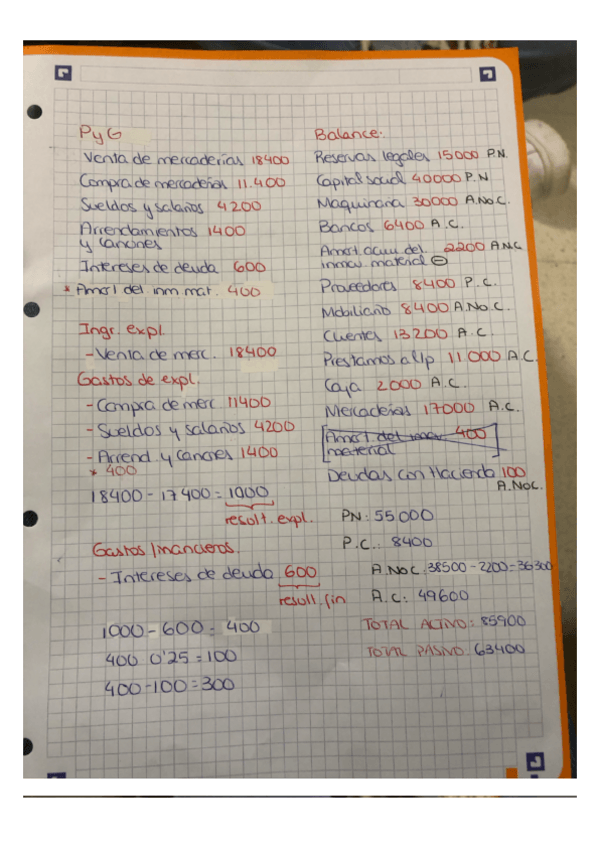 PyG
Venta de mercaderias 18400
Compra de mercaderias 11.400
Sueldos y salarios 4200
Arrendamientos 1400
y canones
Intereses de deuda 600
* Amort del inm mat. 400
Ingr. expl.
- Venta de merc. 18400
Gastos de expl.
- Compra de merc 11400
- Sueldos y salarios 4200
- Arrend y canones 1400
* 400
18400 - 17400 = 1000
result. expl.
Gastos financieros.
- Intereses de deuda 600
result. fin
1000 - 600 = 400
400 0'25 = 100
400 - 100 = 300
Balance.
Reservas legales 15000 P.N.
Capital social 40000 P.N
Maquinaria 30000 A.No C.
Bancos 6400 A.C.
Amort acum. del 2200 A.N.C
inmov. material ⊖
Proveedores 8400 P.C.
Mobiliario 8400 A.No.C.
Clientes 13200 A.C.
Prestamos a l/p 11.000 A.C.
Caja 2000 A.C.
Mercaderias 17000 A.C.
Amort. del inmov 400
material
Deudas con Hacienda 100
A.NoC.
PN: 55.000
P.C.: 8400
A.NoC: 38500 - 2200 = 36300
A.C: 49600
TOTAL ACTIVO: 85900
TOTAL PASIVO: 63400